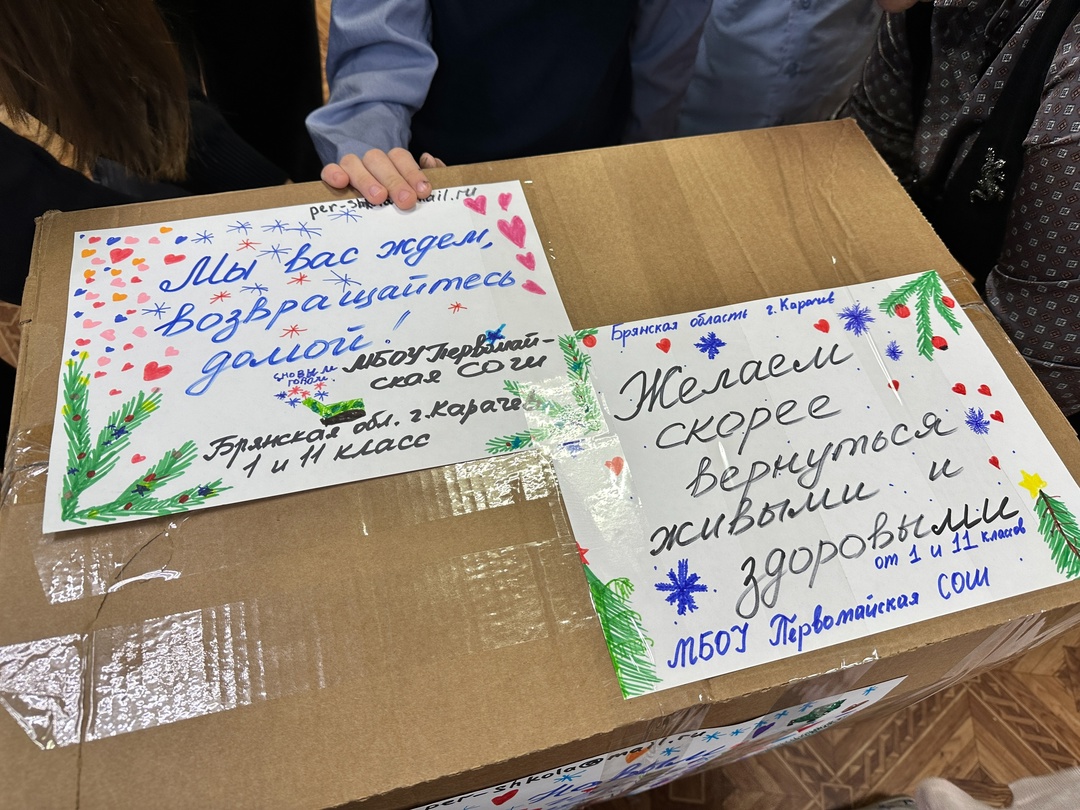 Мы вас ждем,
возвращайтесь
домой!
с новым
годом
МБОУ Первомай-
ская СОШ
Брянская обл. г. Карачев
1 и 11 класс
Брянская область г. Карачев
Желаем
скорее
вернуться
живыми и
здоровыми
от 1 и 11 классов
МБОУ Первомайская СОШ
per-shkola@mail.ru